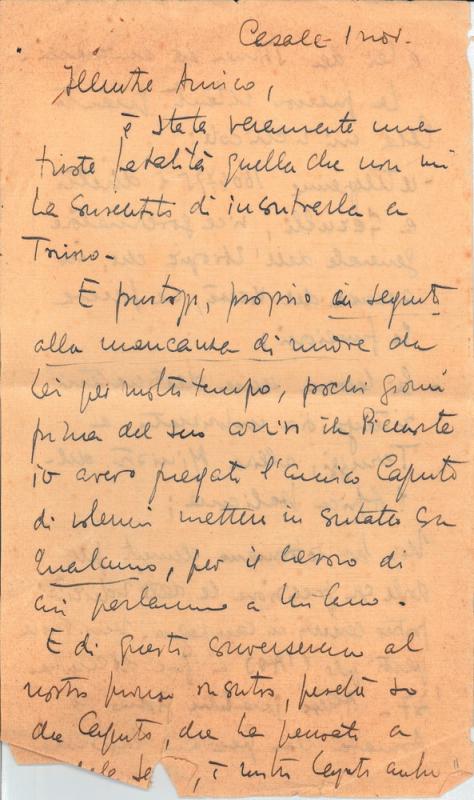 Casale 1 nov.
Illustre Amico,
è stata veramente una
triste fatalità quella che non mi
ha consentito di incontrarla a
Torino.
E purtroppo, proprio in seguito
alla mancanza di nuove da
Lei per molto tempo, pochi giorni
prima del suo arrivo in Piemonte
io avevo pregato l'amico Caputo
di volermi mettere in contatto con
Qualcuno, per il lavoro di
cui parlammo a Milano.
E di questo converseremo al
nostro primo incontro, perché so
che Caputo, che ha pensato a